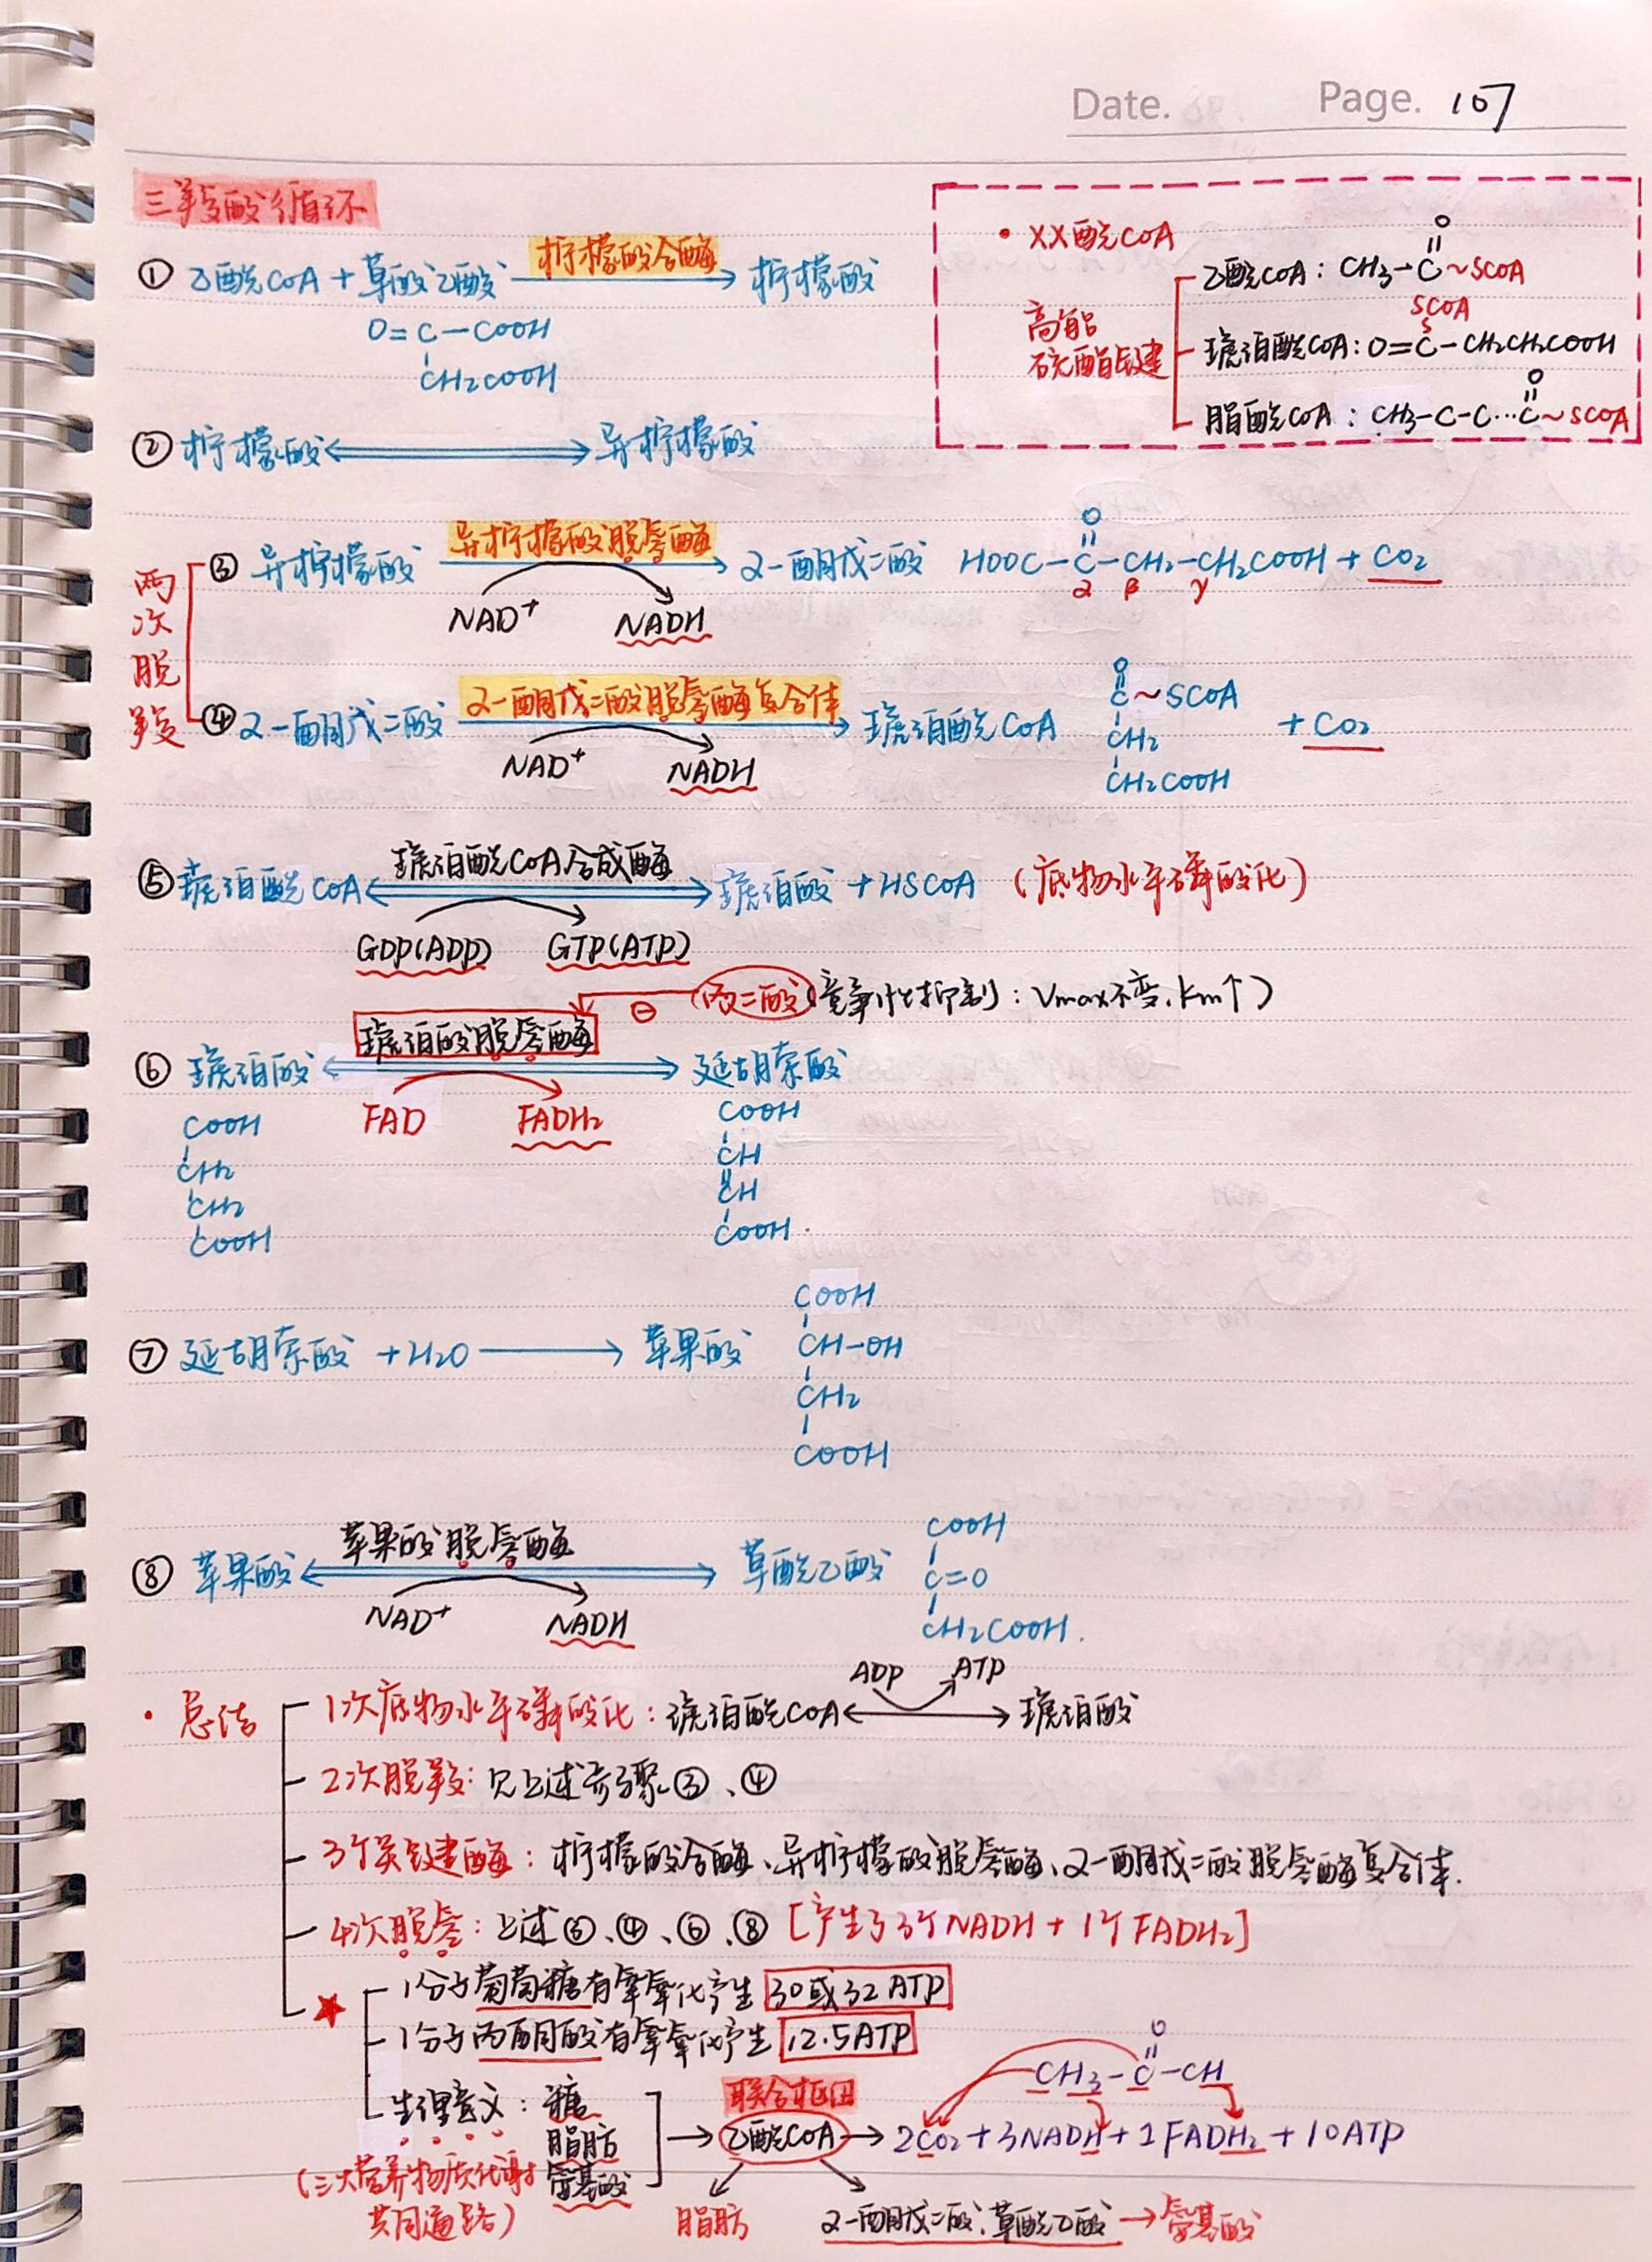 Date. Page. 107
三羧酸循环
① 乙酰CoA + 草酰乙酸 柠檬酸合酶 柠檬酸
O=C-COOH
CH2COOH
• XX酰CoA
高能
硫酯键
O
乙酰CoA: CH3-C~SCoA
SCoA
琥珀酰CoA: O=C-CH2CH2COOH
O
脂酰CoA: CH3-C-C…C~SCoA
② 柠檬酸 异柠檬酸
两次脱羧
③ 异柠檬酸 异柠檬酸脱氢酶 α-酮戊二酸 HOOC-C-CH2-CH2COOH + CO2
O
α β γ
NAD+ NADH
④ α-酮戊二酸 α-酮戊二酸脱氢酶复合体 琥珀酰CoA + CO2
NAD+ NADH
O
C~SCoA
CH2
CH2COOH
⑤ 琥珀酰CoA 琥珀酰CoA合成酶 琥珀酸 + HSCoA (底物水平磷酸化)
GDP(ADP) GTP(ATP)
⊖ 丙二酸(竞争性抑制: Vmax不变, Km↑)
琥珀酸脱氢酶
⑥ 琥珀酸 延胡索酸
FAD FADH2
COOH
CH2
CH2
COOH
COOH
CH
CH
COOH.
⑦ 延胡索酸 + H2O 苹果酸
COOH
CH-OH
CH2
COOH
苹果酸脱氢酶
⑧ 苹果酸 草酰乙酸
NAD+ NADH
COOH
C=O
CH2COOH.
ADP ATP
• 总结 1次底物水平磷酸化: 琥珀酰CoA 琥珀酸
2次脱羧: 见上述步骤③、④
3个关键酶: 柠檬酸合酶、异柠檬酸脱氢酶、α-酮戊二酸脱氢酶复合体.
4次脱氢: 上述③、④、⑥、⑧ [产生了3个NADH + 1个FADH2]
★ 1分子葡萄糖有氧氧化产生 30或32ATP
1分子丙酮酸有氧氧化产生 12.5ATP
O
CH3-C-CH
生理意义: 糖
脂肪
氨基酸
(三大营养物质代谢
共同通路)
联合枢纽
乙酰CoA → 2CO2 + 3NADH + 1FADH2 + 10ATP
脂肪 α-酮戊二酸、草酰乙酸 → 氨基酸